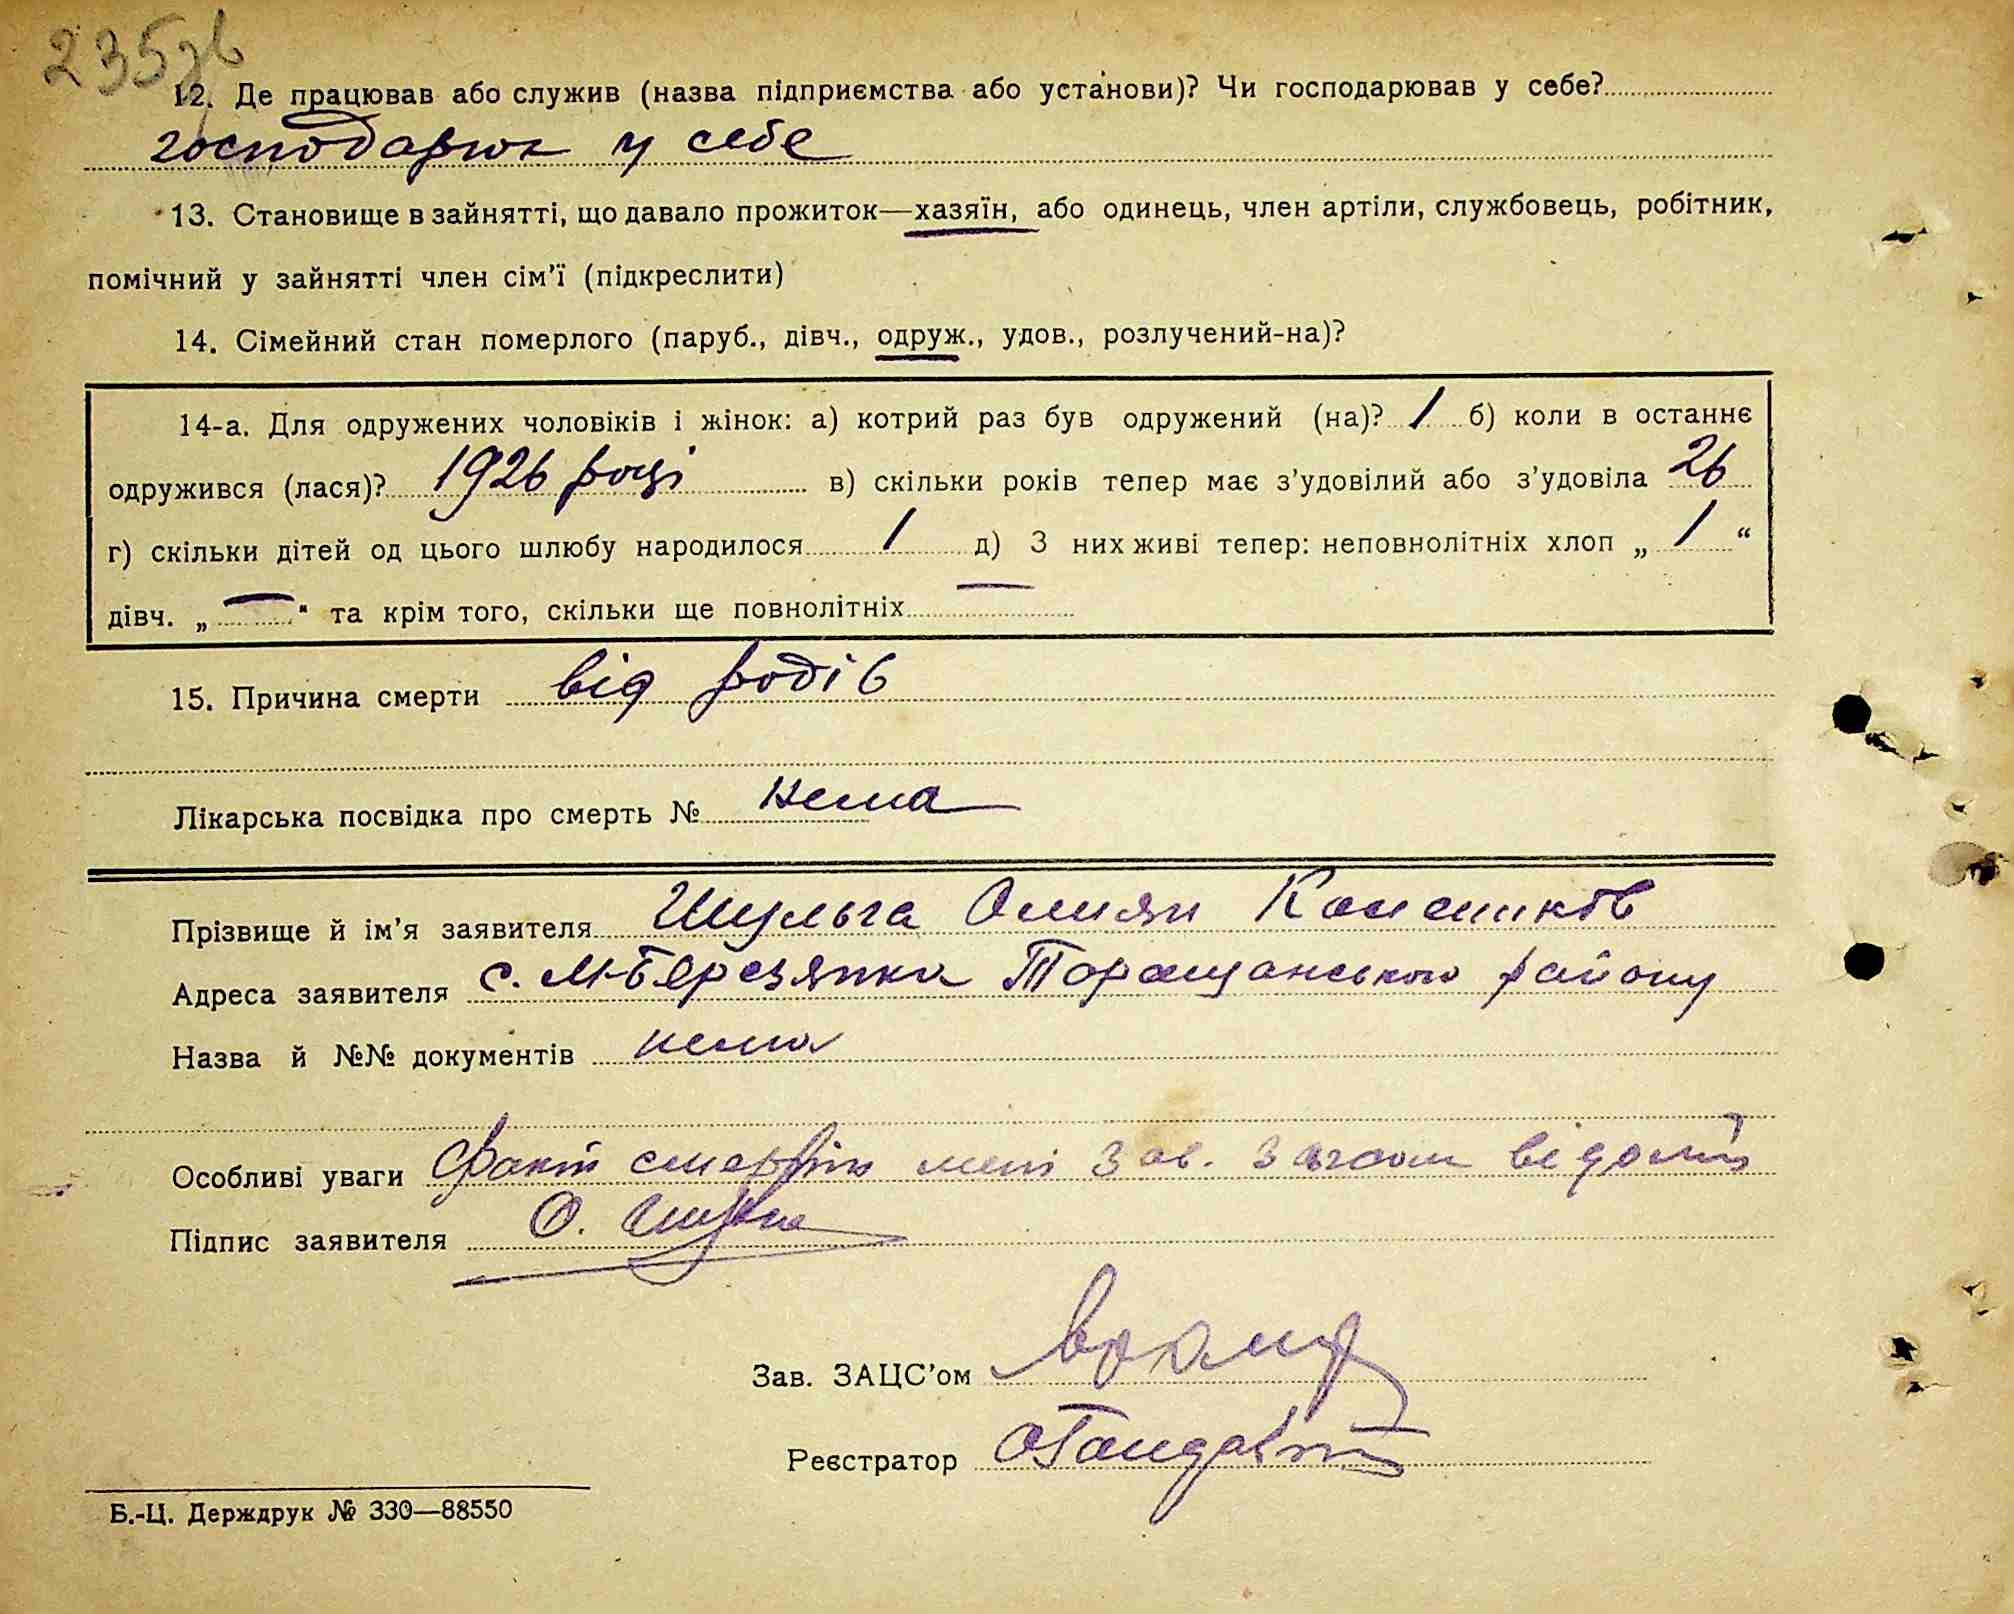 235зв
12. Де працював або служив (назва підприємства або установи)? Чи господарював у себе?
господарюв у себе
13. Становище в зайнятті, що давало прожиток—хазяїн, або одинець, член артіли, службовець, робітник,
помічний у зайнятті член сім'ї (підкреслити)
14. Сімейний стан померлого (паруб., дівч., одруж., удов., розлучений-на)?
14-а. Для одружених чоловіків і жінок: а) котрий раз був одружений (на)? 1 б) коли в останнє
одружився (лася)? 1926 році в) скільки років тепер має з'удовілий або з'удовіла 26
г) скільки дітей од цього шлюбу народилося 1 д) З них живі тепер: неповнолітніх хлоп „ 1 “
дівч. „ — “ та крім того, скільки ще повнолітніх —
15. Причина смерти від родів
Лікарська посвідка про смерть № нема
Прізвище й ім'я заявителя Шульга Омилян
Адреса заявителя с. М-Березянка Таращанського району
Назва й №№ документів нема
Особливі уваги Факт смерти мені зав. загсом відомий
Підпис заявителя О. Шульга
Зав. ЗАЦС'ом
Реєстратор
Б.-Ц. Держдрук № 330—88550